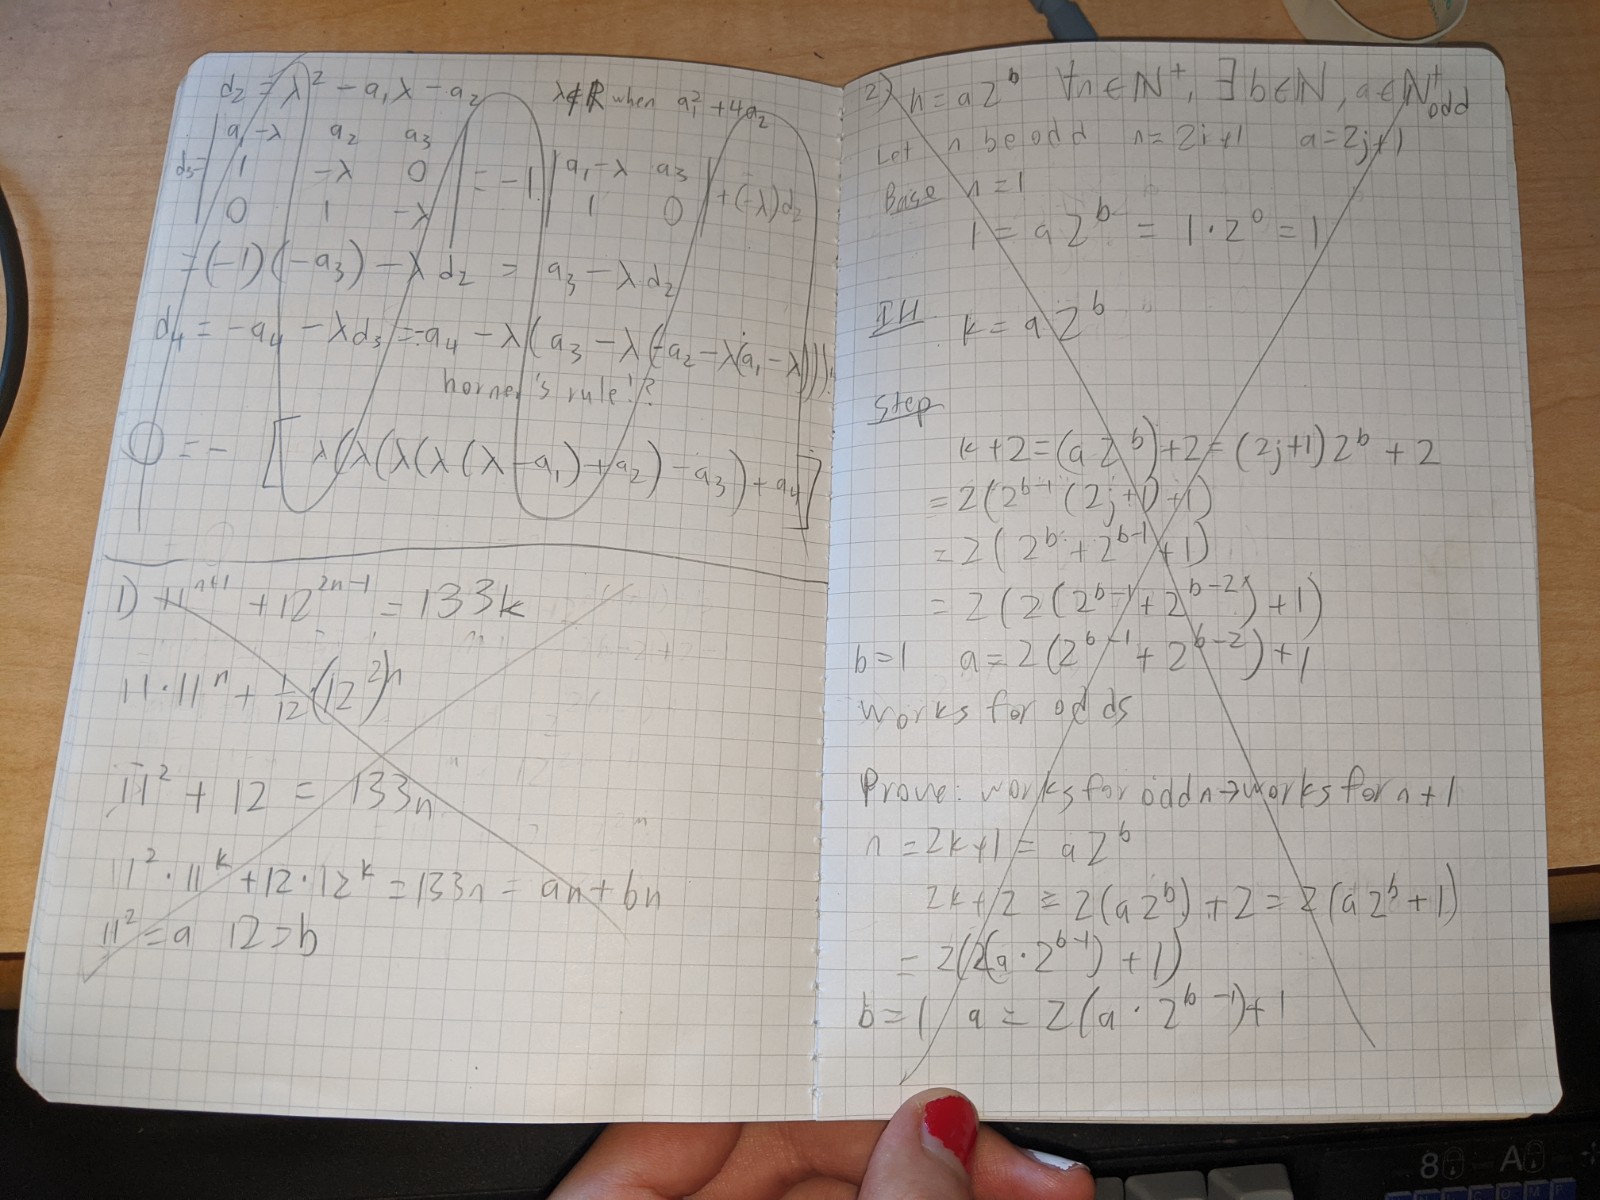 d₂ = λ² - a₁λ - a₂   λ∉ℝ when a₁² + 4a₂
d₃ = | a₁-λ a₂ a₃ |
| 1 -λ 0 | = -1 | a₁-λ a₃ | + (-λ)d₂
| 0 1 -λ |   | 1 0 |
= (-1)(-a₃) - λ d₂ = a₃ - λ d₂
d₄ = -a₄ - λd₃ = -a₄ - λ(a₃ - λ(-a₂ - λ(a₁ - λ)))
horner's rule!?
0 = - [λ(λ(λ(λ(λ - a₁) + a₂) - a₃) + a₄]
1) 11ⁿ⁺¹ + 12²ⁿ⁻¹ = 133k
11·11ⁿ + 1/12 (12²)ⁿ
11² + 12 = 133n
11²·11ᵏ + 12·12ᵏ = 133n = an + bn
11² = a 12 = b
2) n = a2ᵇ ∀n∈ℕ⁺, ∃b∈ℕ, a∈ℕ⁺odd
Let n be odd n = 2i+1 a = 2j+1
Base n = 1
1 = a2ᵇ = 1·2⁰ = 1
IH k = a2ᵇ
Step
k+2 = (a2ᵇ)+2 = (2j+1)2ᵇ + 2
= 2(2ᵇ⁻¹(2j+1)+1)
= 2(2ᵇ + 2ᵇ⁻¹ + 1)
= 2(2(2ᵇ⁻¹ + 2ᵇ⁻²) + 1)
b=1 a = 2(2ᵇ⁻¹ + 2ᵇ⁻²) + 1
works for odds
Prove: works for odd n → works for n+1
n = 2k+1 = a2ᵇ
2k+2 = 2(a2ᵇ) + 2 = 2(a2ᵇ + 1)
= 2(2(a·2ᵇ⁻¹) + 1)
b = 1 a = 2(a·2ᵇ⁻¹)+1
8 A